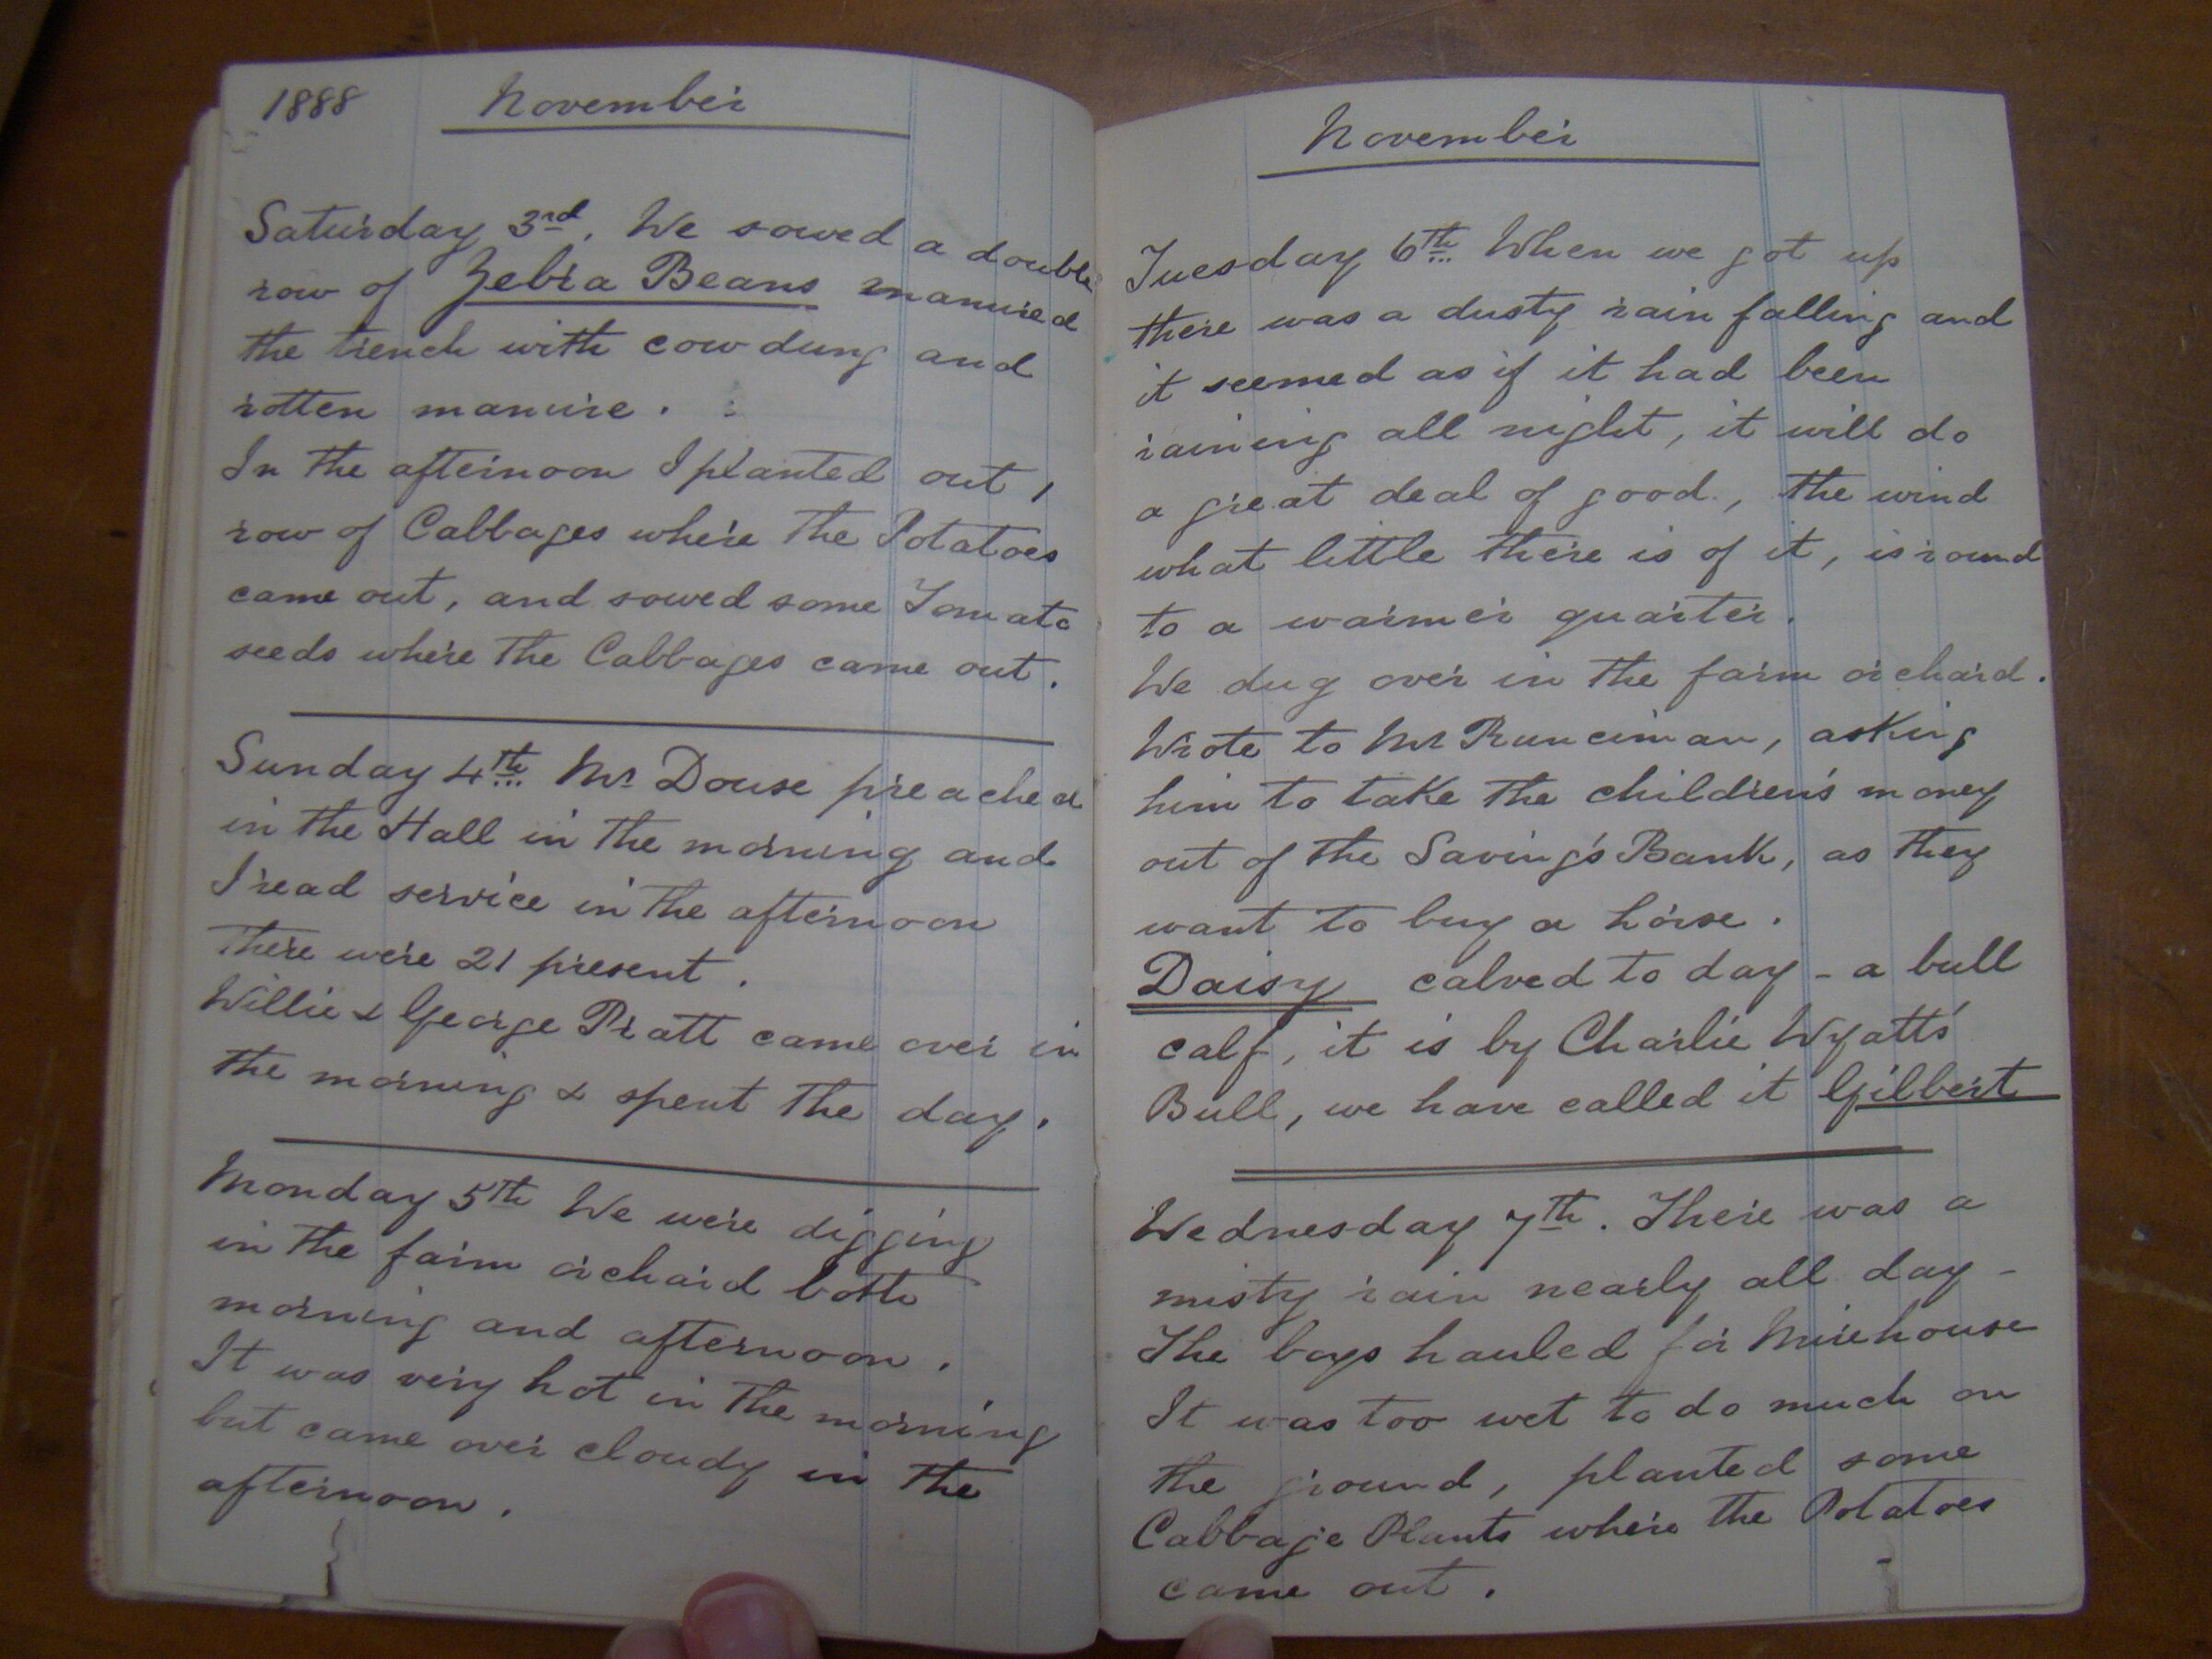 1888 November
Saturday 3rd. We sowed a double
row of Zebra Beans manured
the trench with cow dung and
rotten manure.
In the afternoon I planted out 1
row of Cabbages where the Potatoes
came out, and sowed some Tomato
seeds where the Cabbages came out.
Sunday 4th Mr Douse preached
in the Hall in the morning and
I read service in the afternoon
there were 21 present.
Willie & George Pratt came over in
the morning & spent the day.
Monday 5th We were digging
in the farm orchard both
morning and afternoon.
It was very hot in the morning
but came over cloudy in the
afternoon.
November
Tuesday 6th When we got up
there was a dusty rain falling and
it seemed as if it had been
raining all night, it will do
a great deal of good, the wind
what little there is of it, is round
to a warmer quarter.
We dug over in the farm orchard.
Wrote to Mr Runciman, asking
him to take the children's money
out of the Saving's Bank, as they
want to buy a horse.
Daisy calved to day - a bull
calf, it is by Charlie Wyatts'
Bull, we have called it Gilbert
Wednesday 7th. There was a
misty rain nearly all day -
The boys hauled for Mirehouse
It was too wet to do much on
the ground, planted some
Cabbage Plants where the Potatoes
came out.